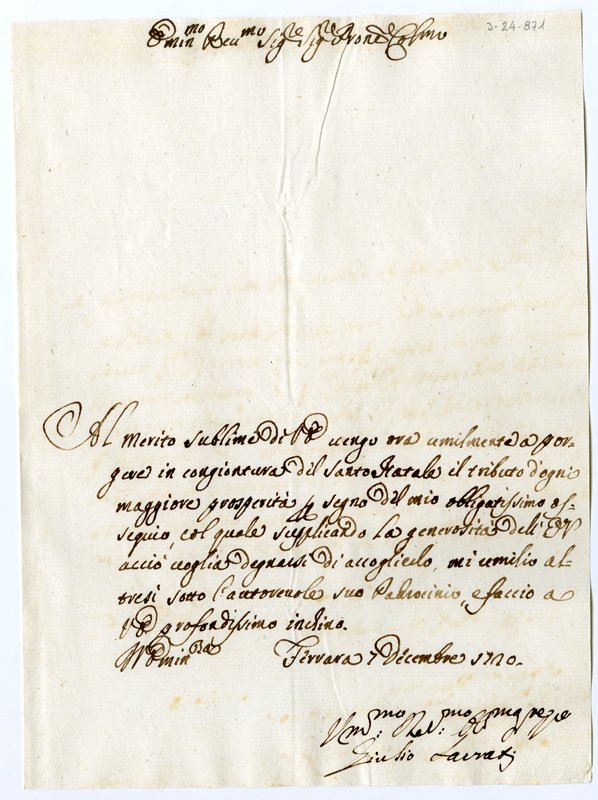 3-24-871
Emin.mo Reu.mo Sig.re Sig.re Pron.e Col.mo
Al merito sublime di V.E. uengo ora umilmente a por-
gere in congiontura del Santo Natale il tributo d'ogni
maggiore prosperità p segno del mio obligatissimo os-
sequio, col quale supplicando la generosità dell' E.V.
acciò uoglia degnarsi di accoglierlo, mi umilio al-
tresi sotto l'autoreuole suo Padrocinio, e faccio a
V.E. profondissimo inchino.
Ferrara 7 Decembre 1720.
Um.mo
Giulio